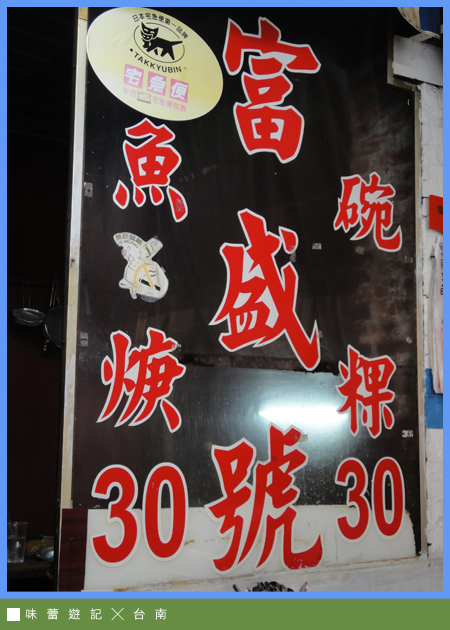 日本宅急便第一品牌
TAKKYUBIN
宅急便
富盛號
碗粿30
魚焿30
味蕾遊記╳台南